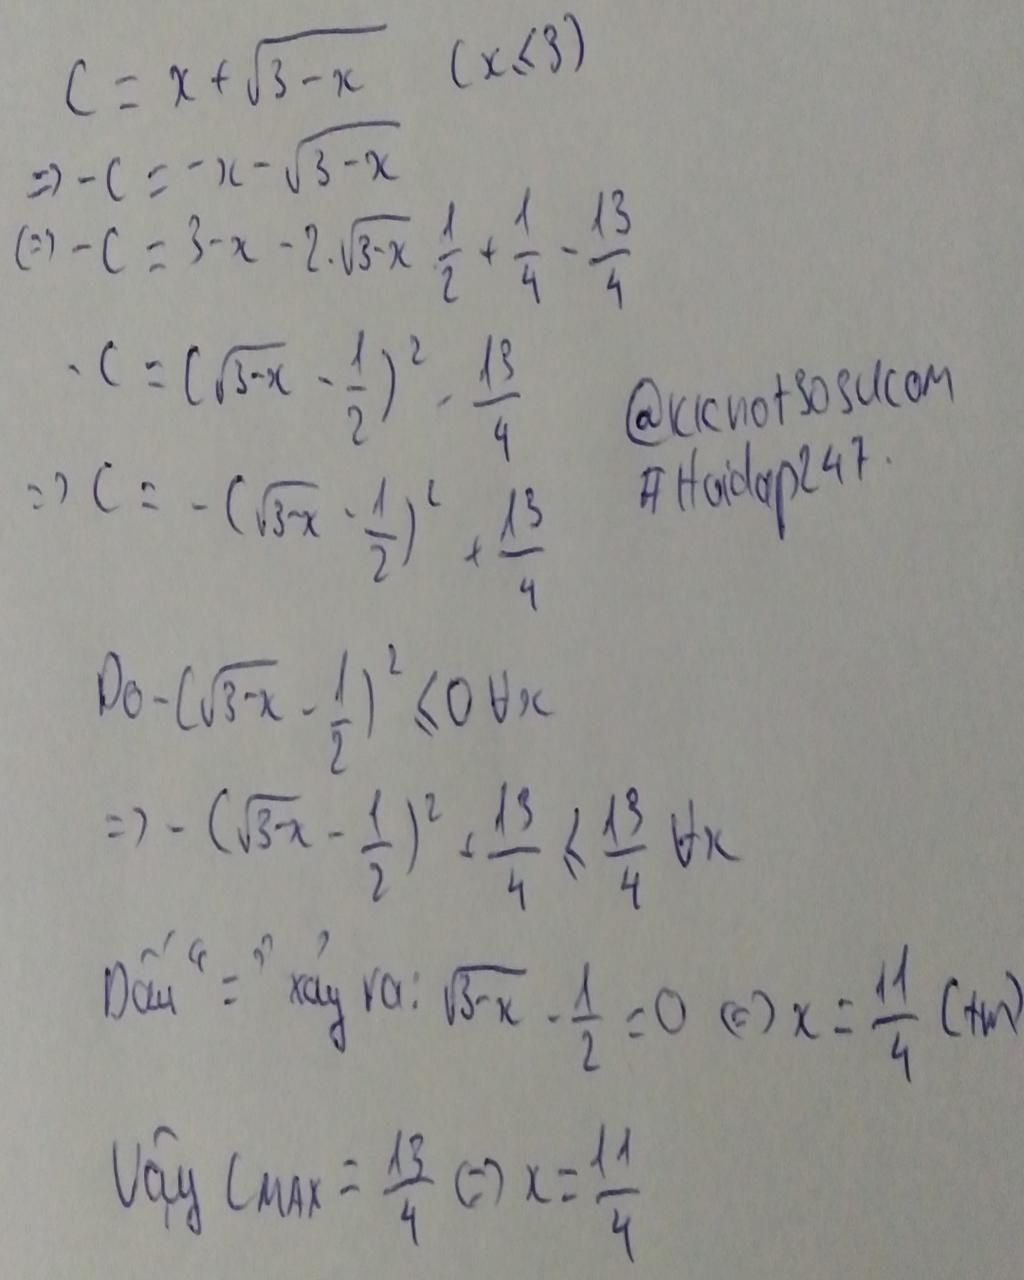 C = x + √(3-x) (x ≤ 3)
=> -C = -x - √(3-x)
(=) -C = 3-x - 2.√(3-x) 1/2 + 1/4 - 13/4
-C = (√(3-x) - 1/2)² - 13/4
=> C = -(√(3-x) - 1/2)² + 13/4
@kknotsosukom
#Hoidap247.
Do -(√(3-x) - 1/2)² ≤ 0 ∀x
=> -(√(3-x) - 1/2)² + 13/4 ≤ 13/4 ∀x
Dấu "=" xảy ra: √(3-x) - 1/2 = 0 (=) x = 11/4 (tm)
Vậy CMAX = 13/4 (=) x = 11/4